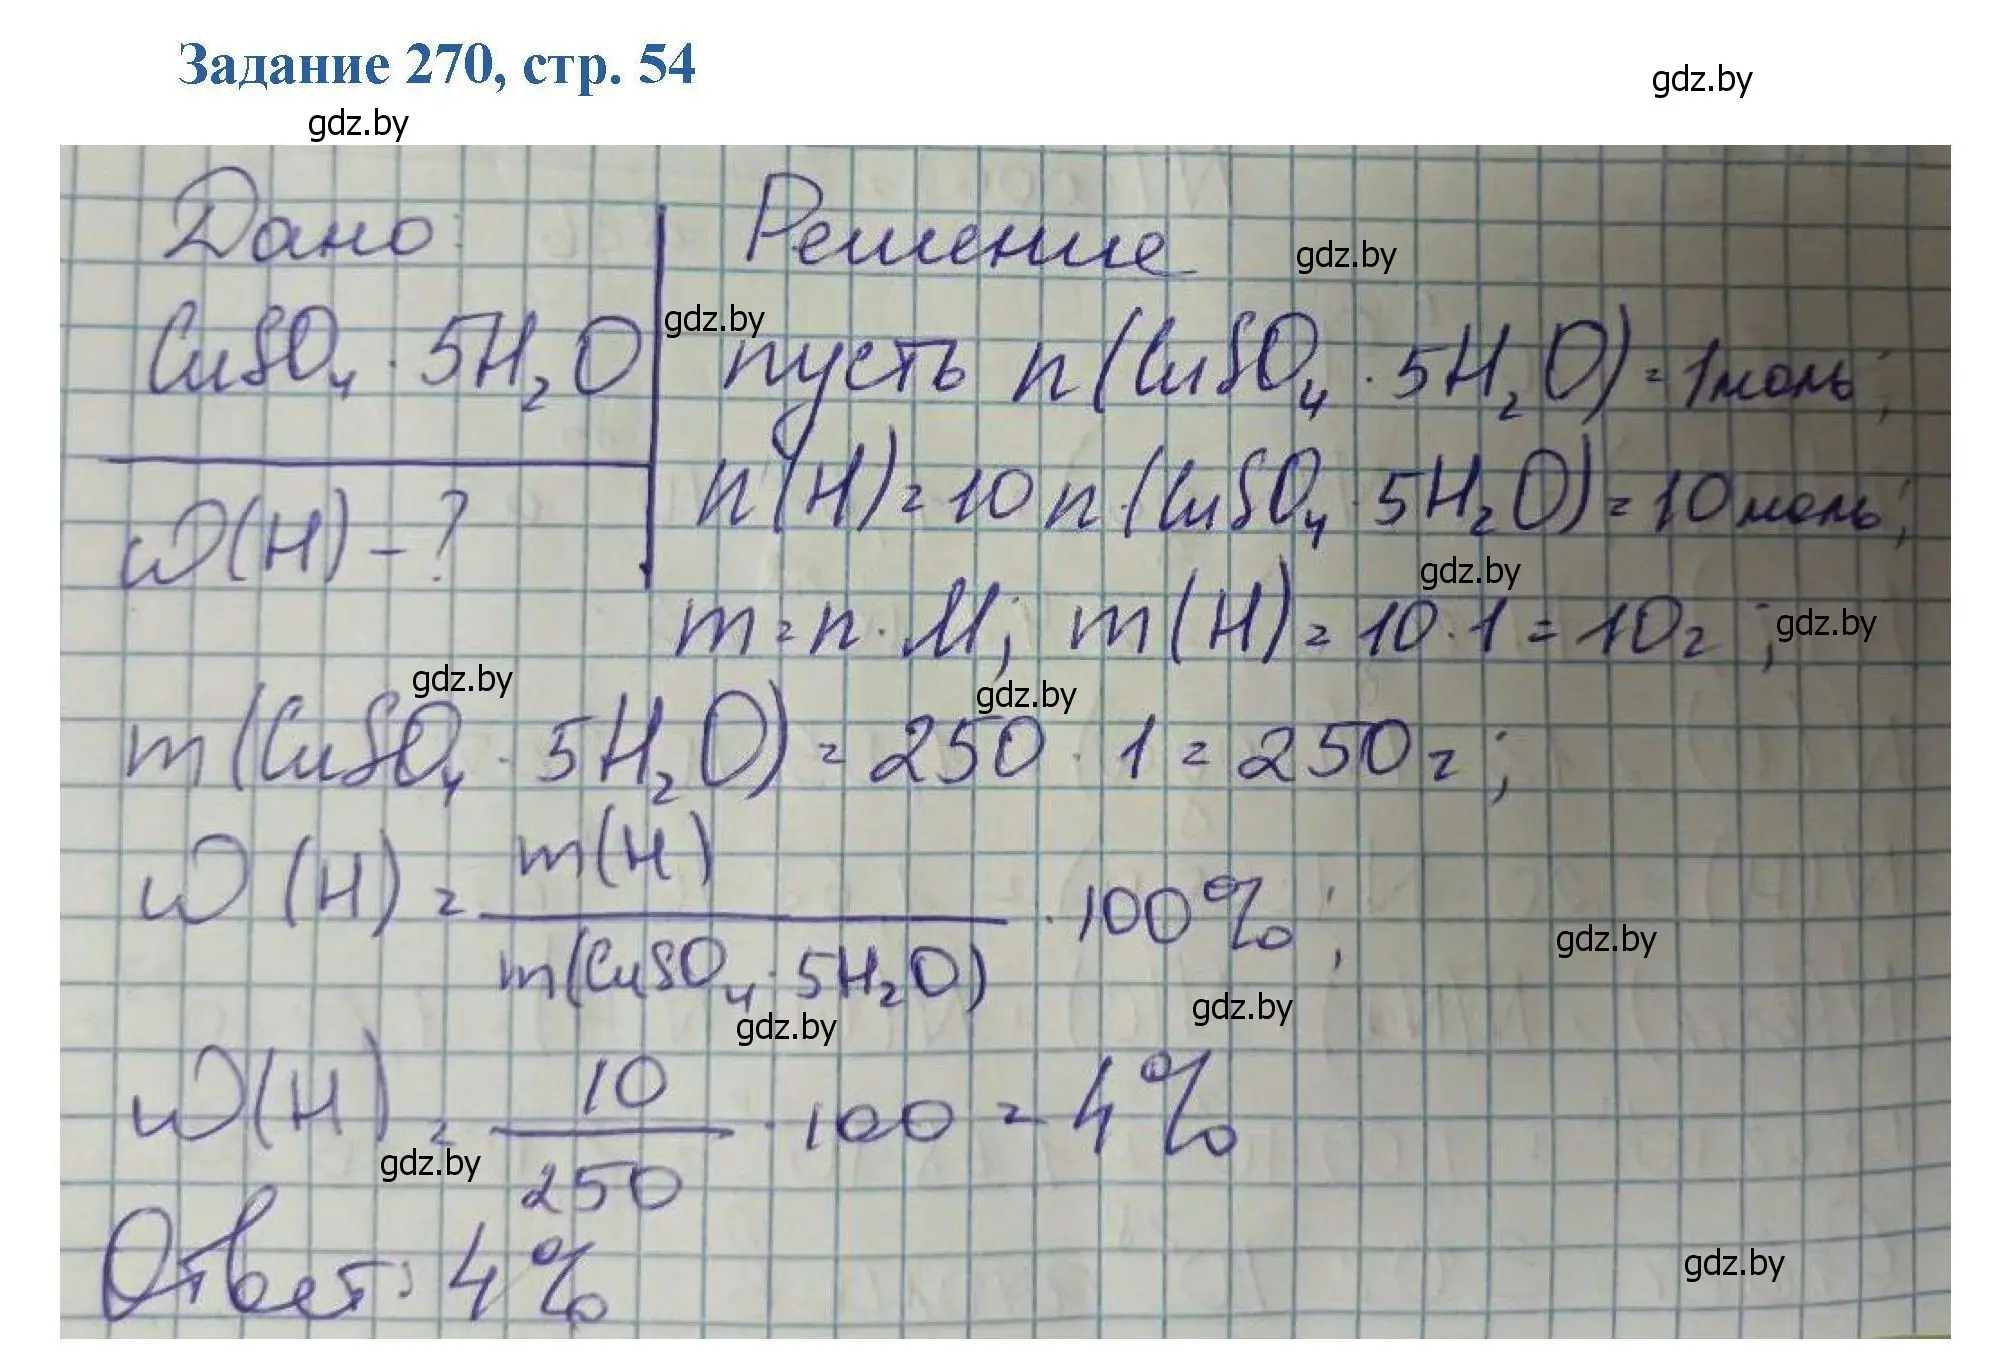 Задание 270, стр. 54
gdz.by
gdz.by
Дано: Решение
gdz.by
CuSO₄ · 5H₂O gdz.by пусть n(CuSO₄ · 5H₂O) = 1моль;
n(H) = 10n·(CuSO₄ · 5H₂O) = 10моль;
W(H) - ?
gdz.by
m = n · M; m(H) = 10 · 1 = 10г; gdz.by
gdz.by gdz.by
m(CuSO₄ · 5H₂O) = 250 · 1 = 250г;
W(H) = m(H) / m(CuSO₄ · 5H₂O) · 100%;
gdz.by
gdz.by gdz.by
W(H) = 10 / 250 · 100 = 4%
gdz.by
Ответ: 4%
gdz.by